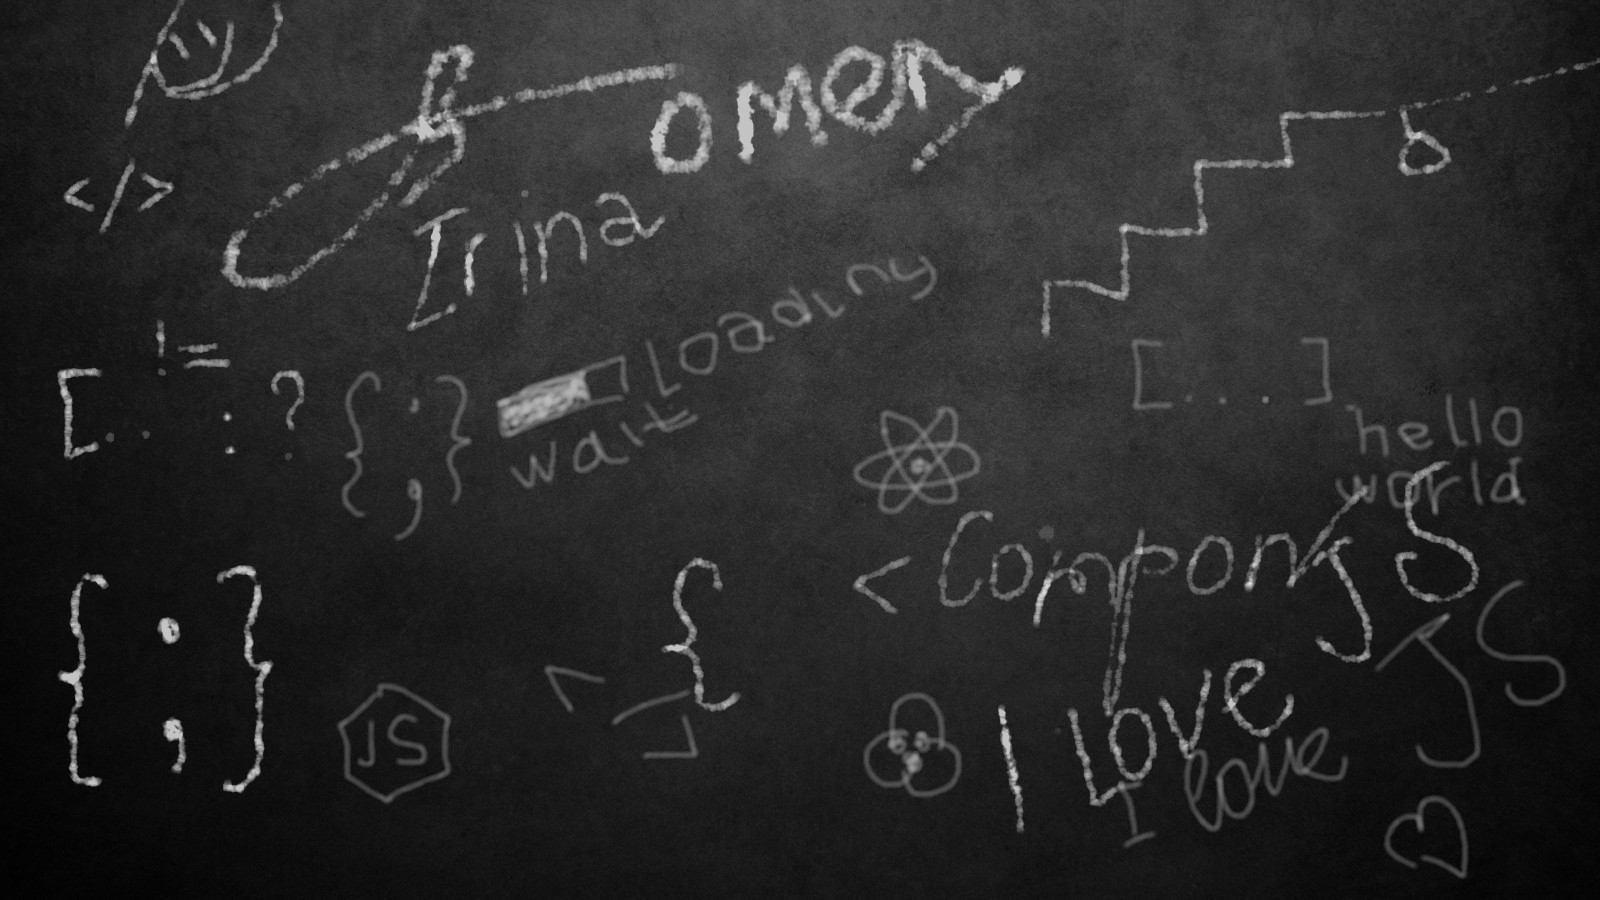 </>
omer
Irina
Loading
wait
!=
[..
:
?
{;}
[....]
hello
world
<Compon
JS
{;}
{
JS
I Love
JS
I love